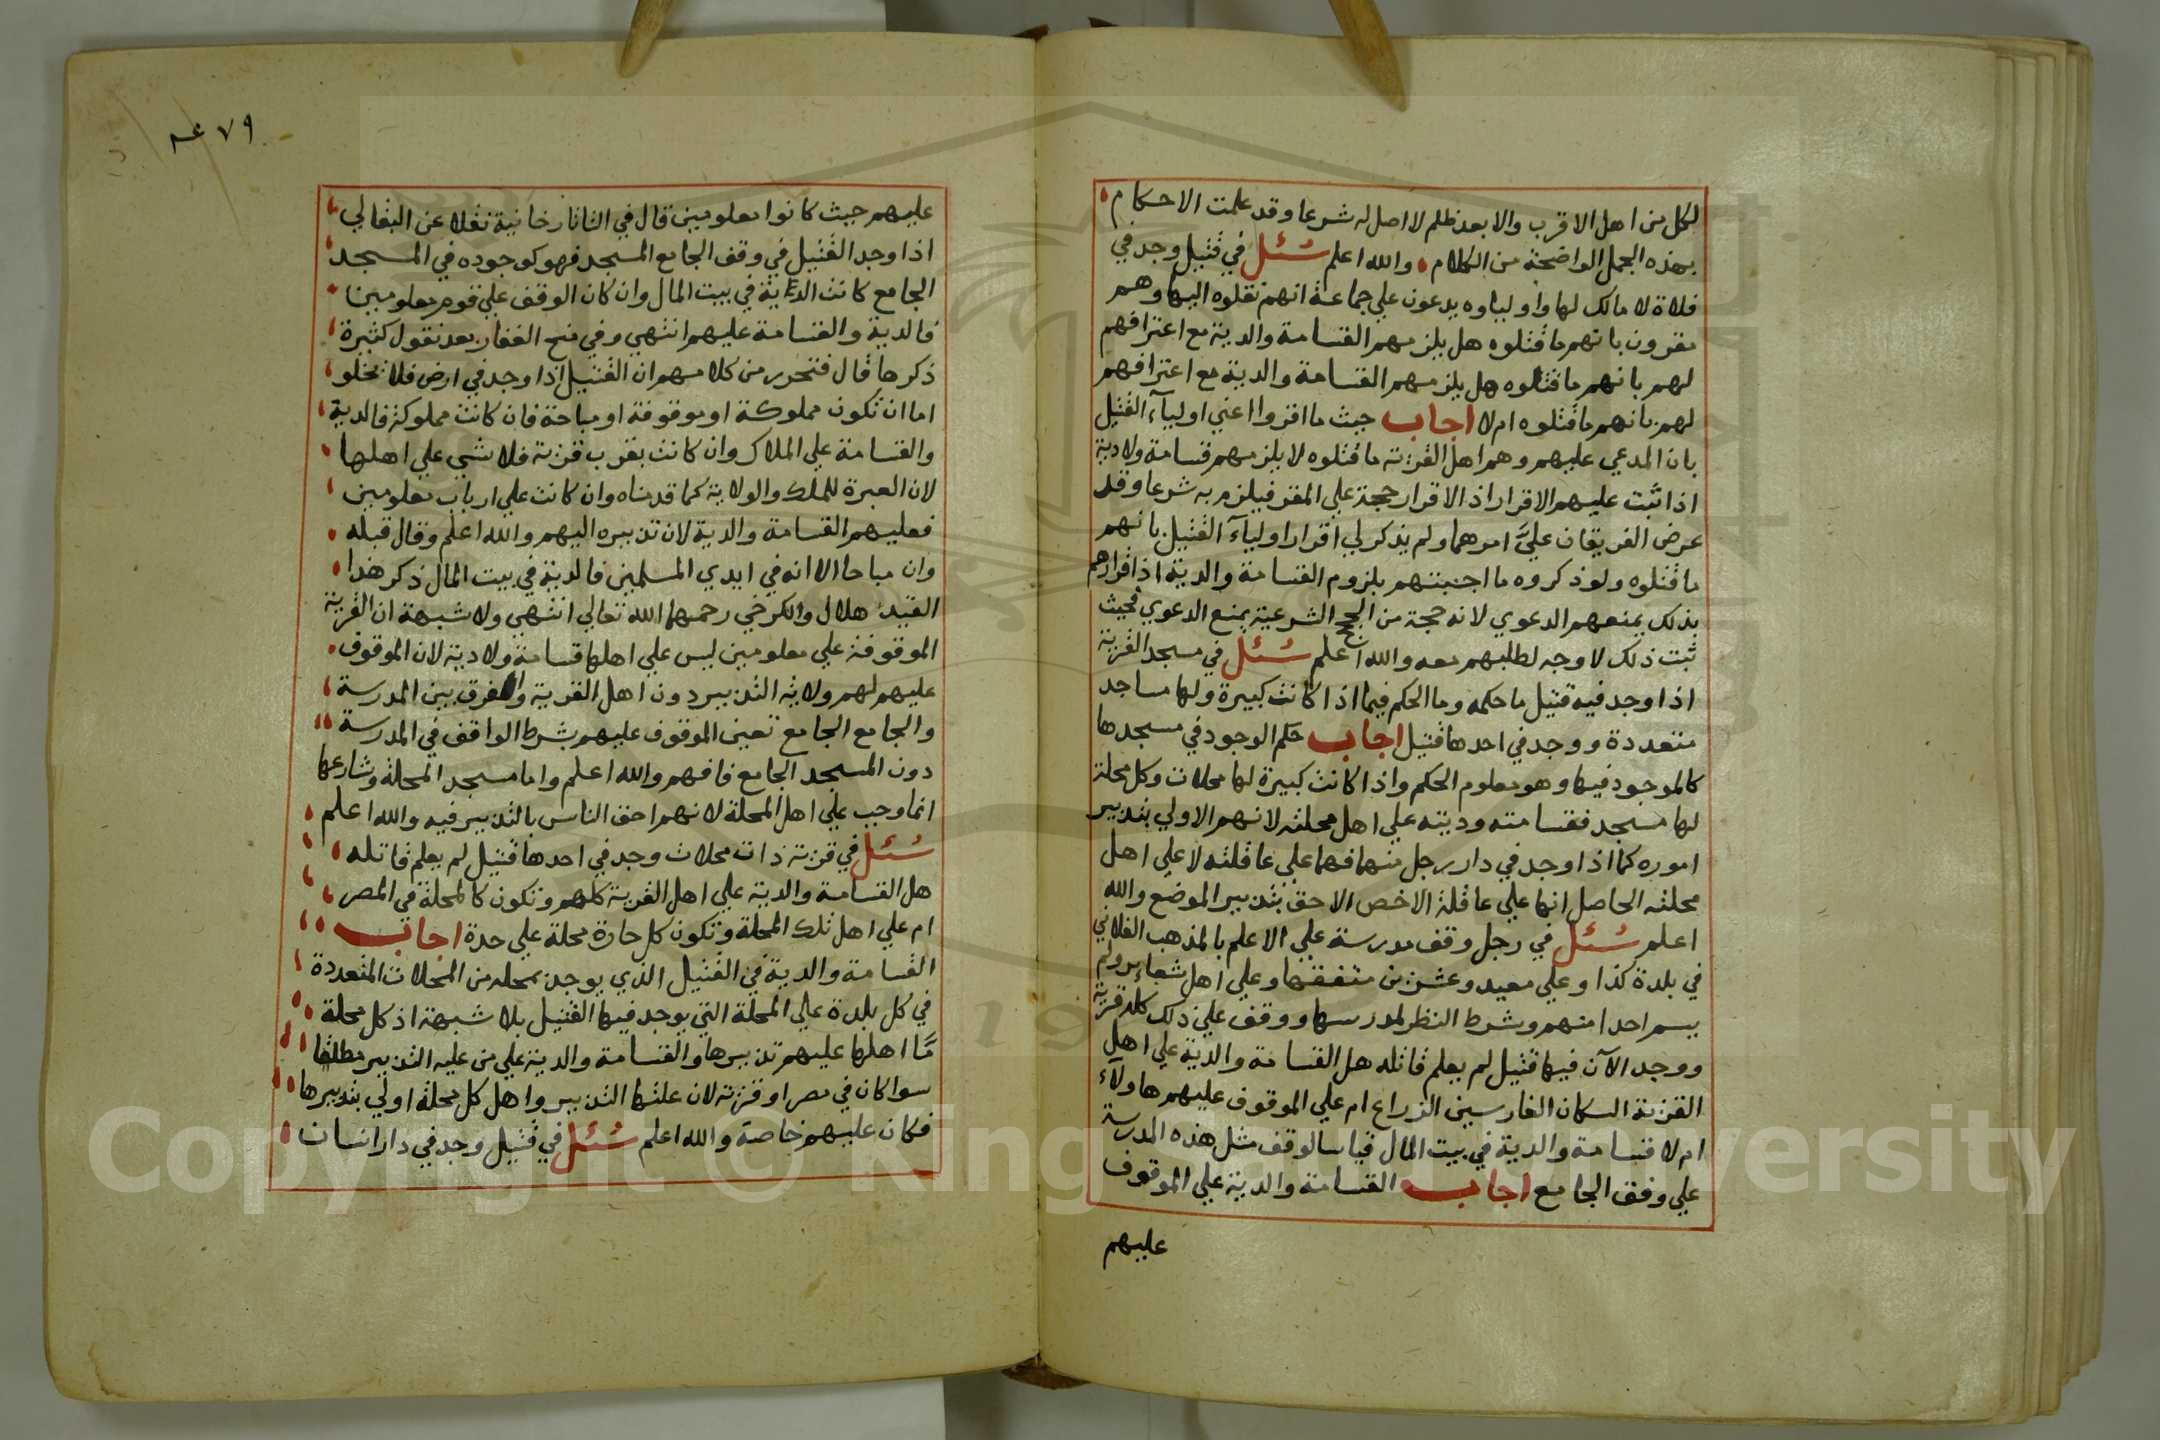 لكل من اهل الاقرب والابعد ظلم لا اصل له شرعا وقد علمت الاحكام
بهذه الجمل الواضحة من الكلام والله اعلم سئل في قتيل وجد في
فلاة لا مالك لها واولياوه يدعون علي جماعة انهم نقلوه اليها وهم
مقرون بانهم ما قتلوه هل يلزمهم القسامة والدية مع اعترافهم
لهم بانهم ما قتلوه هل يلزمهم القسامة والدية مع اعترافهم
لهم بانهم ما قتلوه ام لا اجاب حيث ما اقروا اعني اوليآء القتيل
بان المدعي عليهم وهم اهل القرية ما قتلوه لا يلزمهم قسامة ولا دية
اذا ثبت عليهم الاقرار اذ الاقرار حجة علي المقر فيلزم به شرعا وقد
عرض الفريقان عليَّ امرهما ولم يذكر لي اقرار اوليآء القتيل بانهم
ما قتلوه ولو ذكروه ما اجبتهم بلزوم القسامة والدية اذ اقرارهم
بذلك يمنعهم الدعوي لانه حجة من الحجج الشرعية يمنع الدعوي فحيث
ثبت ذلك لا وجه لطلبهم معه والله اعلم سئل في مسجد القرية
اذا وجد فيه قتيل ما حكمه وما الحكم فيما اذا كانت كبيرة ولها مساجد
متعددة ووجد في احدها قتيل اجاب حكم الوجود في مسجدها
كالموجود فيها وهو معلوم الحكم واذا كانت كبيرة لها محلات وكل محلة
لها مسجد فقسامته وديته علي اهل محلته لانهم الاولي بتدبير
اموره كما اذا وجد في دار رجل منها فهما علي عاقلته لا علي اهل
محلته الحاصل انها علي عاقلة الاخص الاحق بتدبير الموضع والله
اعلم سئل في رجل وقف مدرسة علي الاعلم بالمذهب الفلاني
في بلدة كذا وعلي معيد وعشرين متفقها وعلي اهل شعاير ولم
يسم احدا منهم وشرط النظر لمدرسها ووقف علي ذلك كله قرية
ووجد الآن فيها قتيل لم يعلم قاتله هل القسامة والدية علي اهل
القرية السكان الفارسين الزراع ام علي الموقوف عليهم هاولآء
ام لا قسامة والدية في بيت المال قياسا لوقف مثل هذه المدرسة
علي وقف الجامع اجاب القسامة والدية علي الموقوف
عليهم
٧٩
عليهم حيث كانوا معلومين قال في التاتارخانية نقلا عن البقالي
اذا وجد القتيل في وقف الجامع المسجد فهو كوجوده في المسجد
الجامع كانت الدية في بيت المال وان كان الوقف علي قوم معلومين
فالدية والقسامة عليهم انتهي وفي منح الغفار بعد نقول كثيرة
ذكرها قال فتحرر من كلامهم ان القتيل اذا وجد في ارض فلا تخلو
اما ان تكون مملوكة او موقوفة او مباحة فان كانت مملوكة فالدية
والقسامة علي الملاك وان كانت بقرب قرية فلا شي علي اهلها
لان العبرة للملك والولاية كما قدمناه وان كانت علي ارباب معلومين
فعليهم القسامة والدية لان تدبيره اليهم والله اعلم وقال قبله
وان مباحا الا انه في ايدي المسلمين فالدية في بيت المال ذكر هذا
القيد هلال والكرخي رحمهما الله تعالي انتهي ولا شبهة ان القرية
الموقوفة علي معلومين ليس علي اهلها قسامة ولا دية لان الموقوف
عليهم لهم ولاية التدبير دون اهل القرية والفرق بين المدرسة
والجامع الجامع تعين الموقوف عليهم بشرط الواقف في المدرسة
دون المسجد الجامع فافهم والله اعلم واما مسجد المحلة وشارعها
انما وجب علي اهل المحلة لانهم احق الناس بالتدبير فيه والله اعلم
سئل في قرية ذات محلات وجد في احدها قتيل لم يعلم قاتله
هل القسامة والدية علي اهل القرية كلهم وتكون كالمحلة في المصر
ام علي اهل تلك المحلة وتكون كل حارة محلة علي حدة اجاب
القسامة والدية في القتيل الذي يوجد بمحله من المحلات المتعددة
في كل بلدة علي المحلة التي يوجد فيها القتيل بلا شبهة اذ كل محلة
مّا اهلها عليهم تدبيرها والقسامة والدية علي من عليه التدبير مطلقا
سوا كان في مصر او قرية لان علتها التدبير واهل كل محلة اولي بتدبيرها
فكان عليهم خاصة والله اعلم سئل في قتيل وجد في دار انسان
Copyright © King Saud University